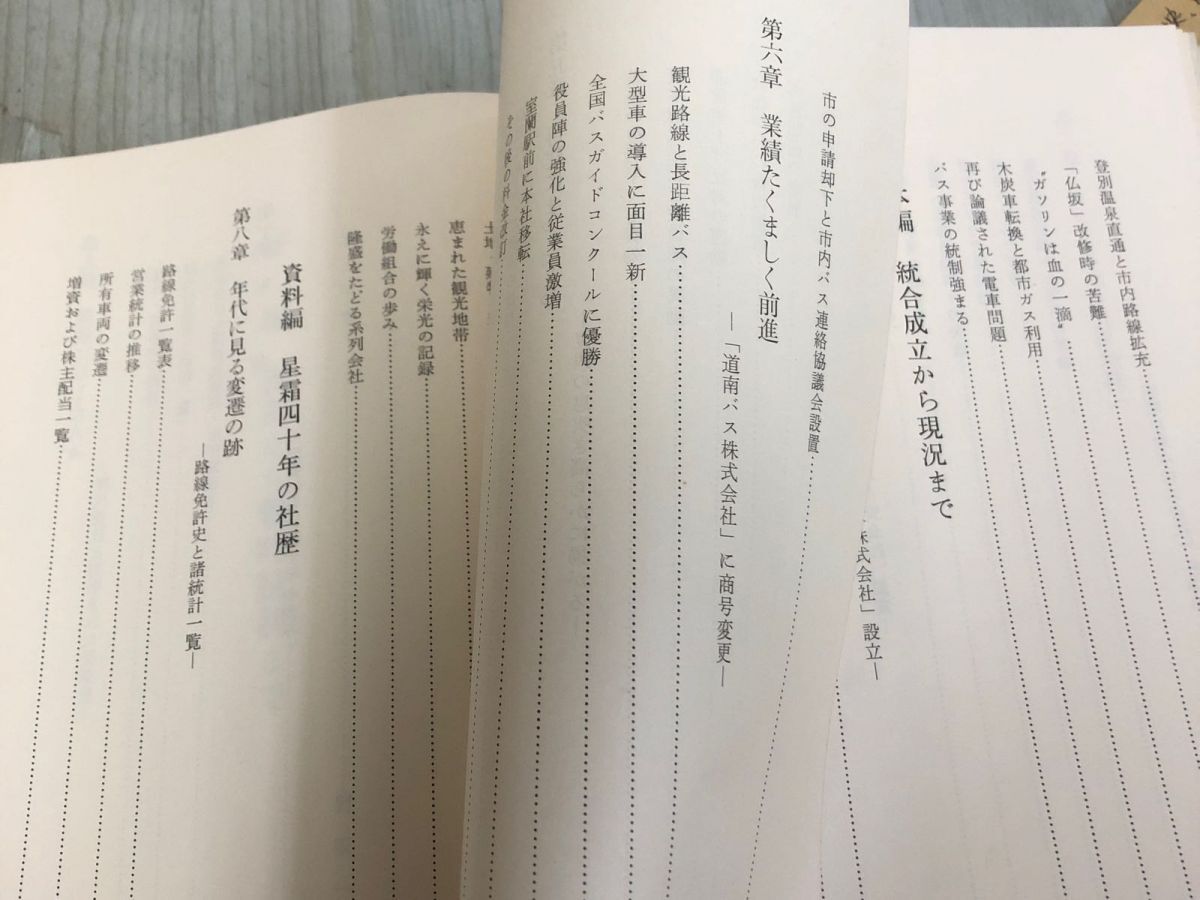 登別温泉直通と市内路線拡充
「仏坂」改修時の苦難
〝ガソリンは血の一滴〟
木炭車転換と都市ガス利用
再び論議された電車問題
バス事業の統制強まる
編　統合成立から現況まで
株式会社」設立―
市の申請却下と市内バス連絡協議会設置
第六章　業績たくましく前進
―「道南バス株式会社」に商号変更―
観光路線と長距離バス
大型車の導入に面目一新
全国バスガイドコンクールに優勝
役員陣の強化と従業員激増
室蘭駅前に本社移転
その後の料金改訂
恵まれた観光地帯
永えに輝く栄光の記録
労働組合の歩み
隆盛をたどる系列会社
資料編　星霜四十年の社歴
第八章　年代に見る変遷の跡
―路線免許史と諸統計一覧―
路線免許一覧表
営業統計の推移
所有車両の変遷
増資および株主配当一覧